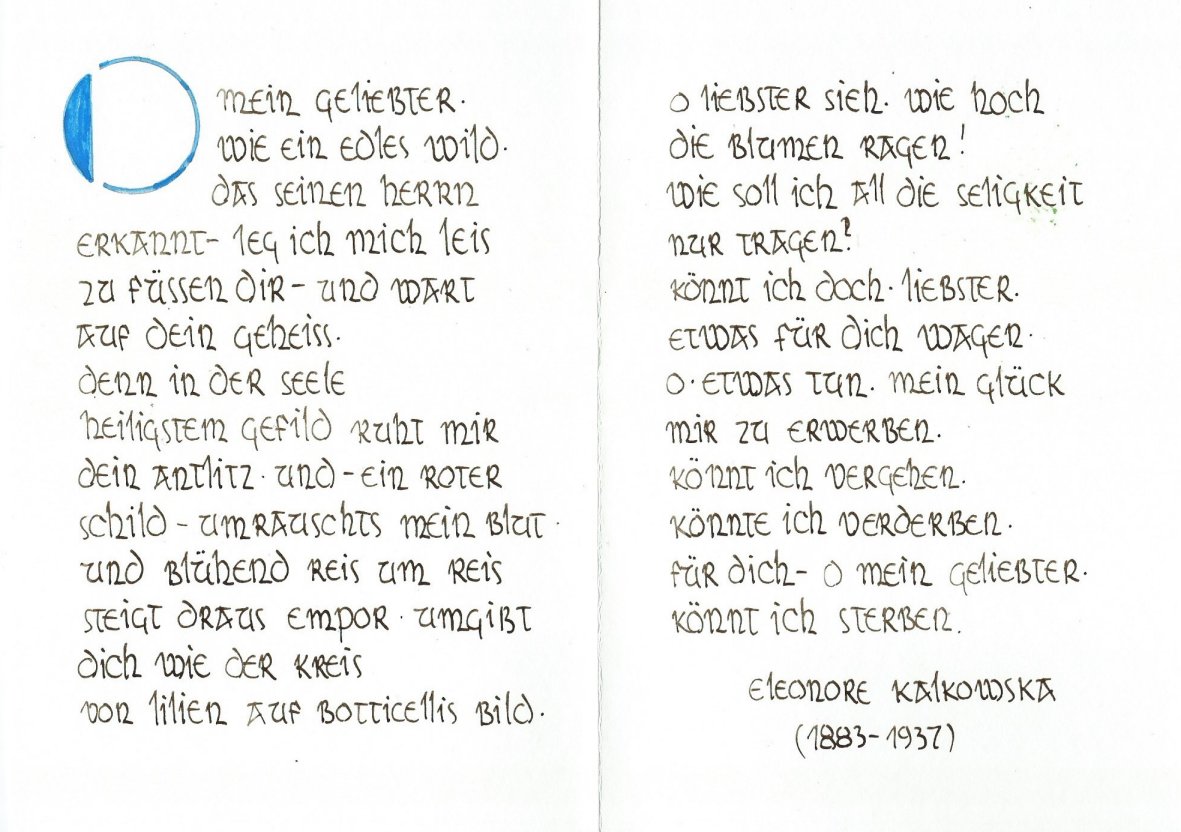 O mein geliebter.
wie ein edles wild.
das seinen herrn
erkannt- leg ich mich leis
zu füssen dir - und wart
auf dein geheiss.
denn in der seele
heiligstem gefild ruht mir
dein antlitz. und - ein roter
schild - umrauschts mein blut.
und blühend reis um reis
steigt draus empor. umgibt
dich wie der kreis
von lilien auf botticellis bild.
o liebster sieh. wie hoch
die blumen ragen!
wie soll ich all die seligkeit
nur tragen?
könnt ich doch. liebster.
etwas für dich wagen.
o. etwas tun. mein glück
mir zu erwerben.
könnt ich vergehen.
könnte ich verderben.
für dich- o mein geliebter.
könnt ich sterben.
eleonore kalkowska
(1883-1937)